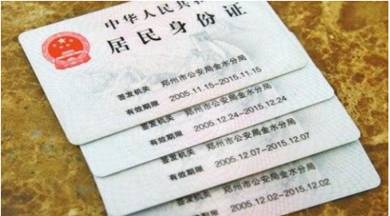 中华人民共
居民身份证
签发机关 郑州市公安局金水分局
有效期限 2005.11.15-2015.11.15
签发机关 郑州市公安局金水分局
有效期限 2005.12.24-2015.12.24
签发机关 郑州市公安局金水分局
有效期限 2005.12.07-2015.12.07
签发机关 郑州市公安局金水分局
有效期限 2005.12.02-2015.12.02